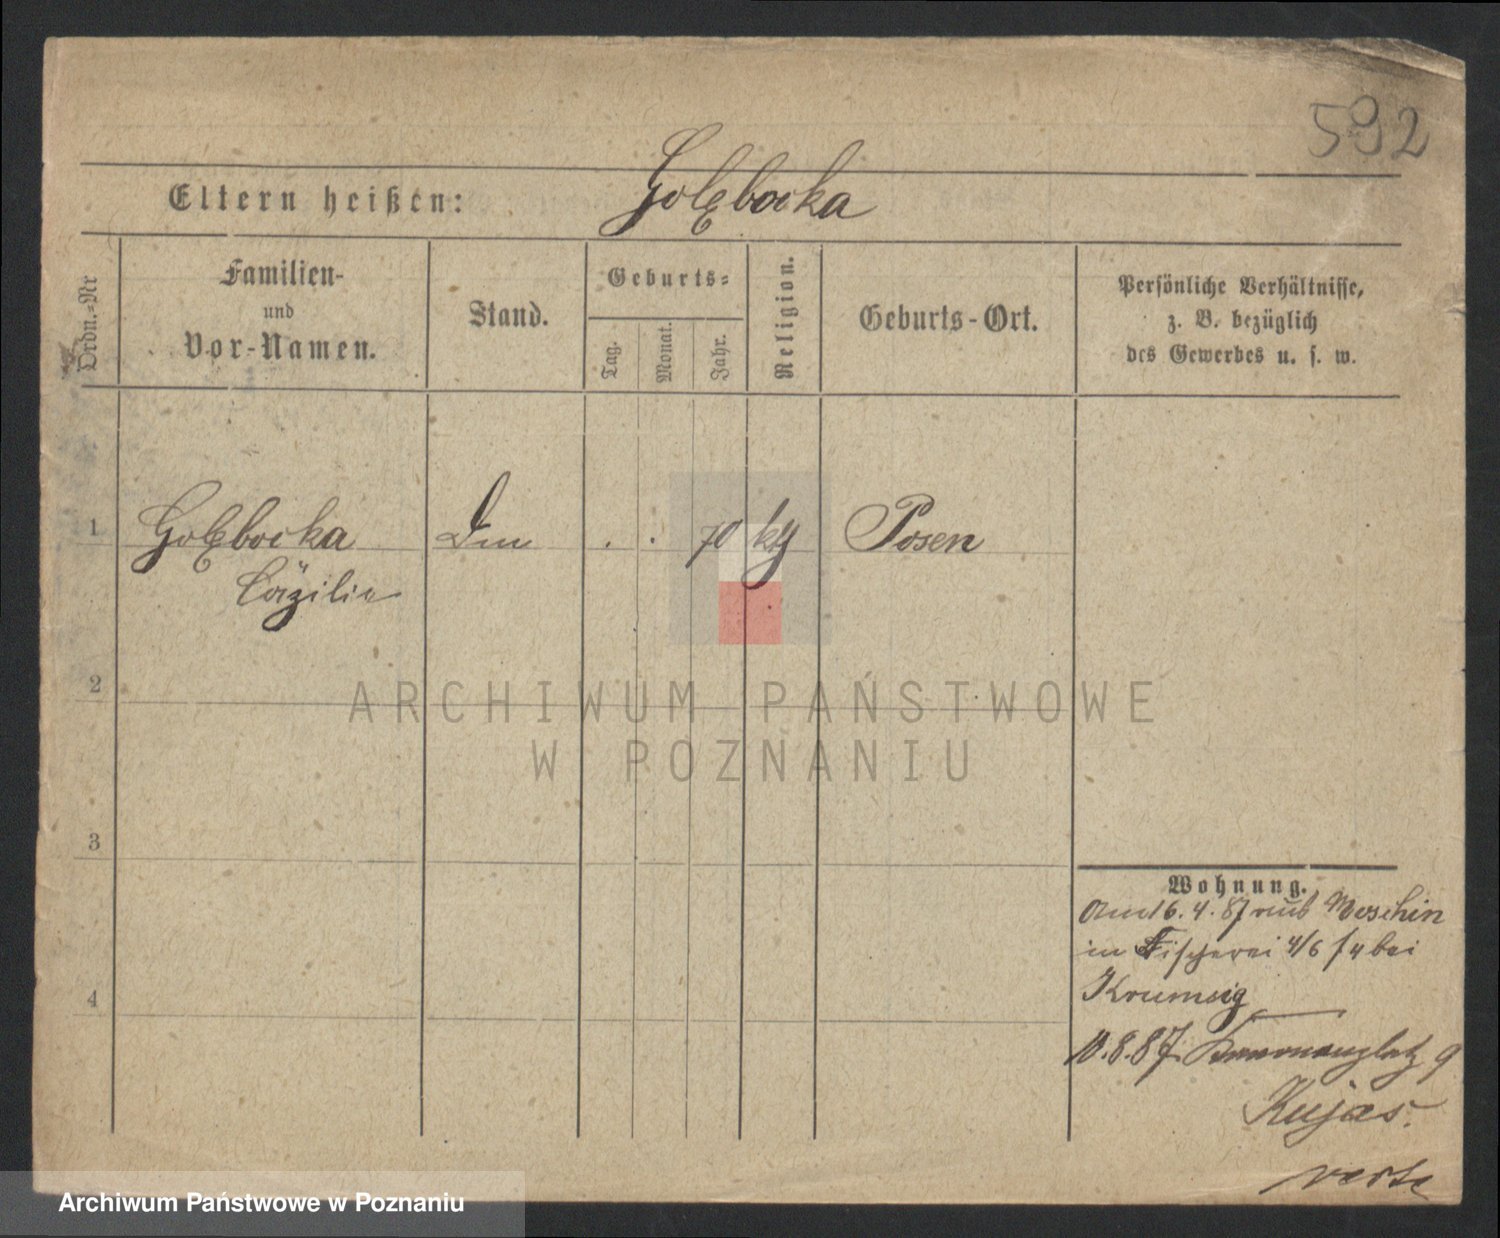 592
Eltern heißen: Golębocka
Ordn.-Nr
Familien-
und
Vor-Namen.
Stand.
Geburts-
Tag.
Monat.
Jahr.
Religion.
Geburts-Ort.
Persönliche Verhältnisse,
z. B. bezüglich
des Gewerbes u. s. w.
1 Golębocka 70 Posen
Cäzilie
2
ARCHIWUM PAŃSTWOWE
W POZNANIU
3
Wohnung.
16.4.87 Moschin
in Fischerei 4/6 bei
4
Krumsig
10.8.87 9
Kujas.
verte
Archiwum Państwowe w Poznaniu